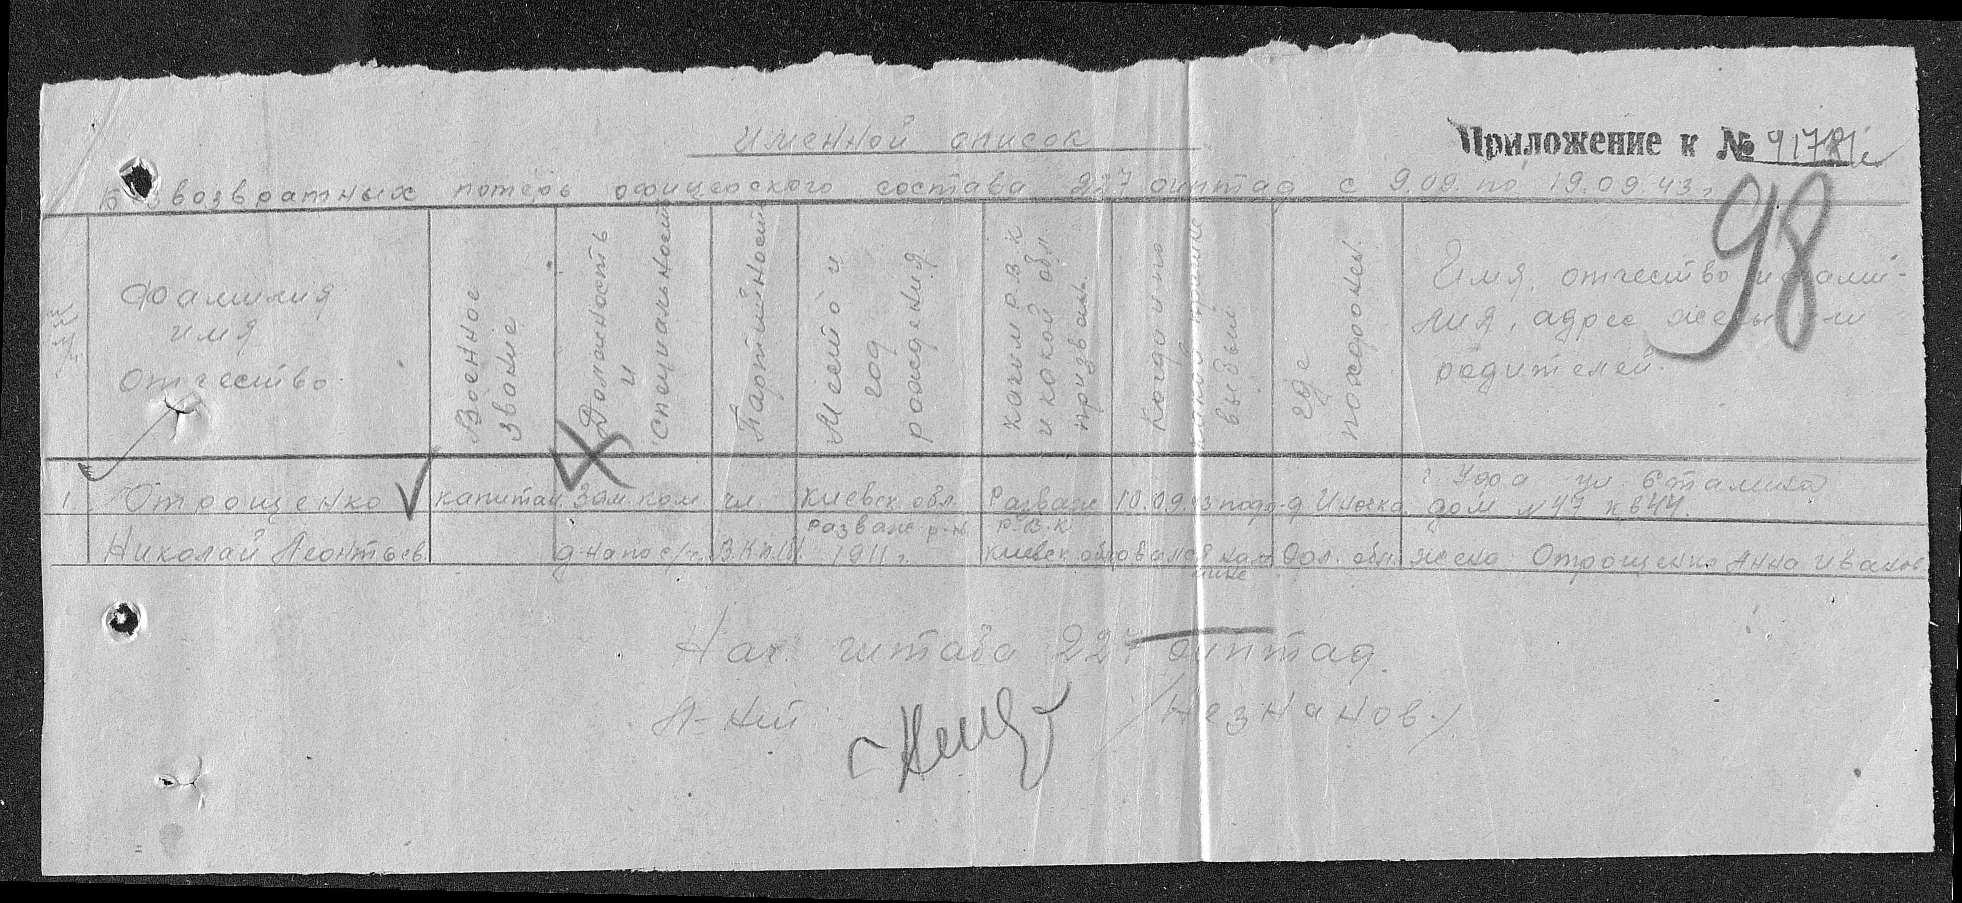 Именной список
Приложение к №
98
Безвозвратных потерь офицерского состава 227 оиптад с 9.09. по 19.09.43г.
Фамилия имя отчество
Военное звание
Должность и специальность
Партийность
Место и год рождения
Каким РВК и какой обл. призван.
Когда и по какой причине выбыл
где похоронен.
Имя, отчество и фамилия, адрес жены или родителей.
1. Отрощенко капитан Зам. ком чл. Киевск. обл. Розваж 10.09.43 подор д. Иночка г. Уфа ул. Сталина дом №47 кв 44.
Николай Леонтьев. д-на по с/ч. ВКП/б/. Розваж р-н 1911 г. р.в.к Киевск обл овался на мине Орл. обл. жена Отрощенко Анна Иванов
Нач. штаба 227 оиптад.
/Незнанов./